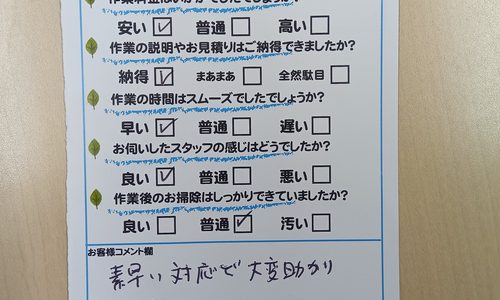 作業料金はいかがでしたでしょうか?
安い ☑ 普通 □ 高い □
作業の説明やお見積りはご納得できましたか?
納得 ☑ まぁまぁ □ 全然駄目 □
作業の時間はスムーズでしたでしょうか?
早い ☑ 普通 □ 遅い □
お伺いしたスタッフの感じはどうでしたか?
良い ☑ 普通 □ 悪い □
作業後のお掃除はしっかりできていましたか?
良い □ 普通 ☑ 汚い □
お客様コメント欄
素早い対応で大変助かり